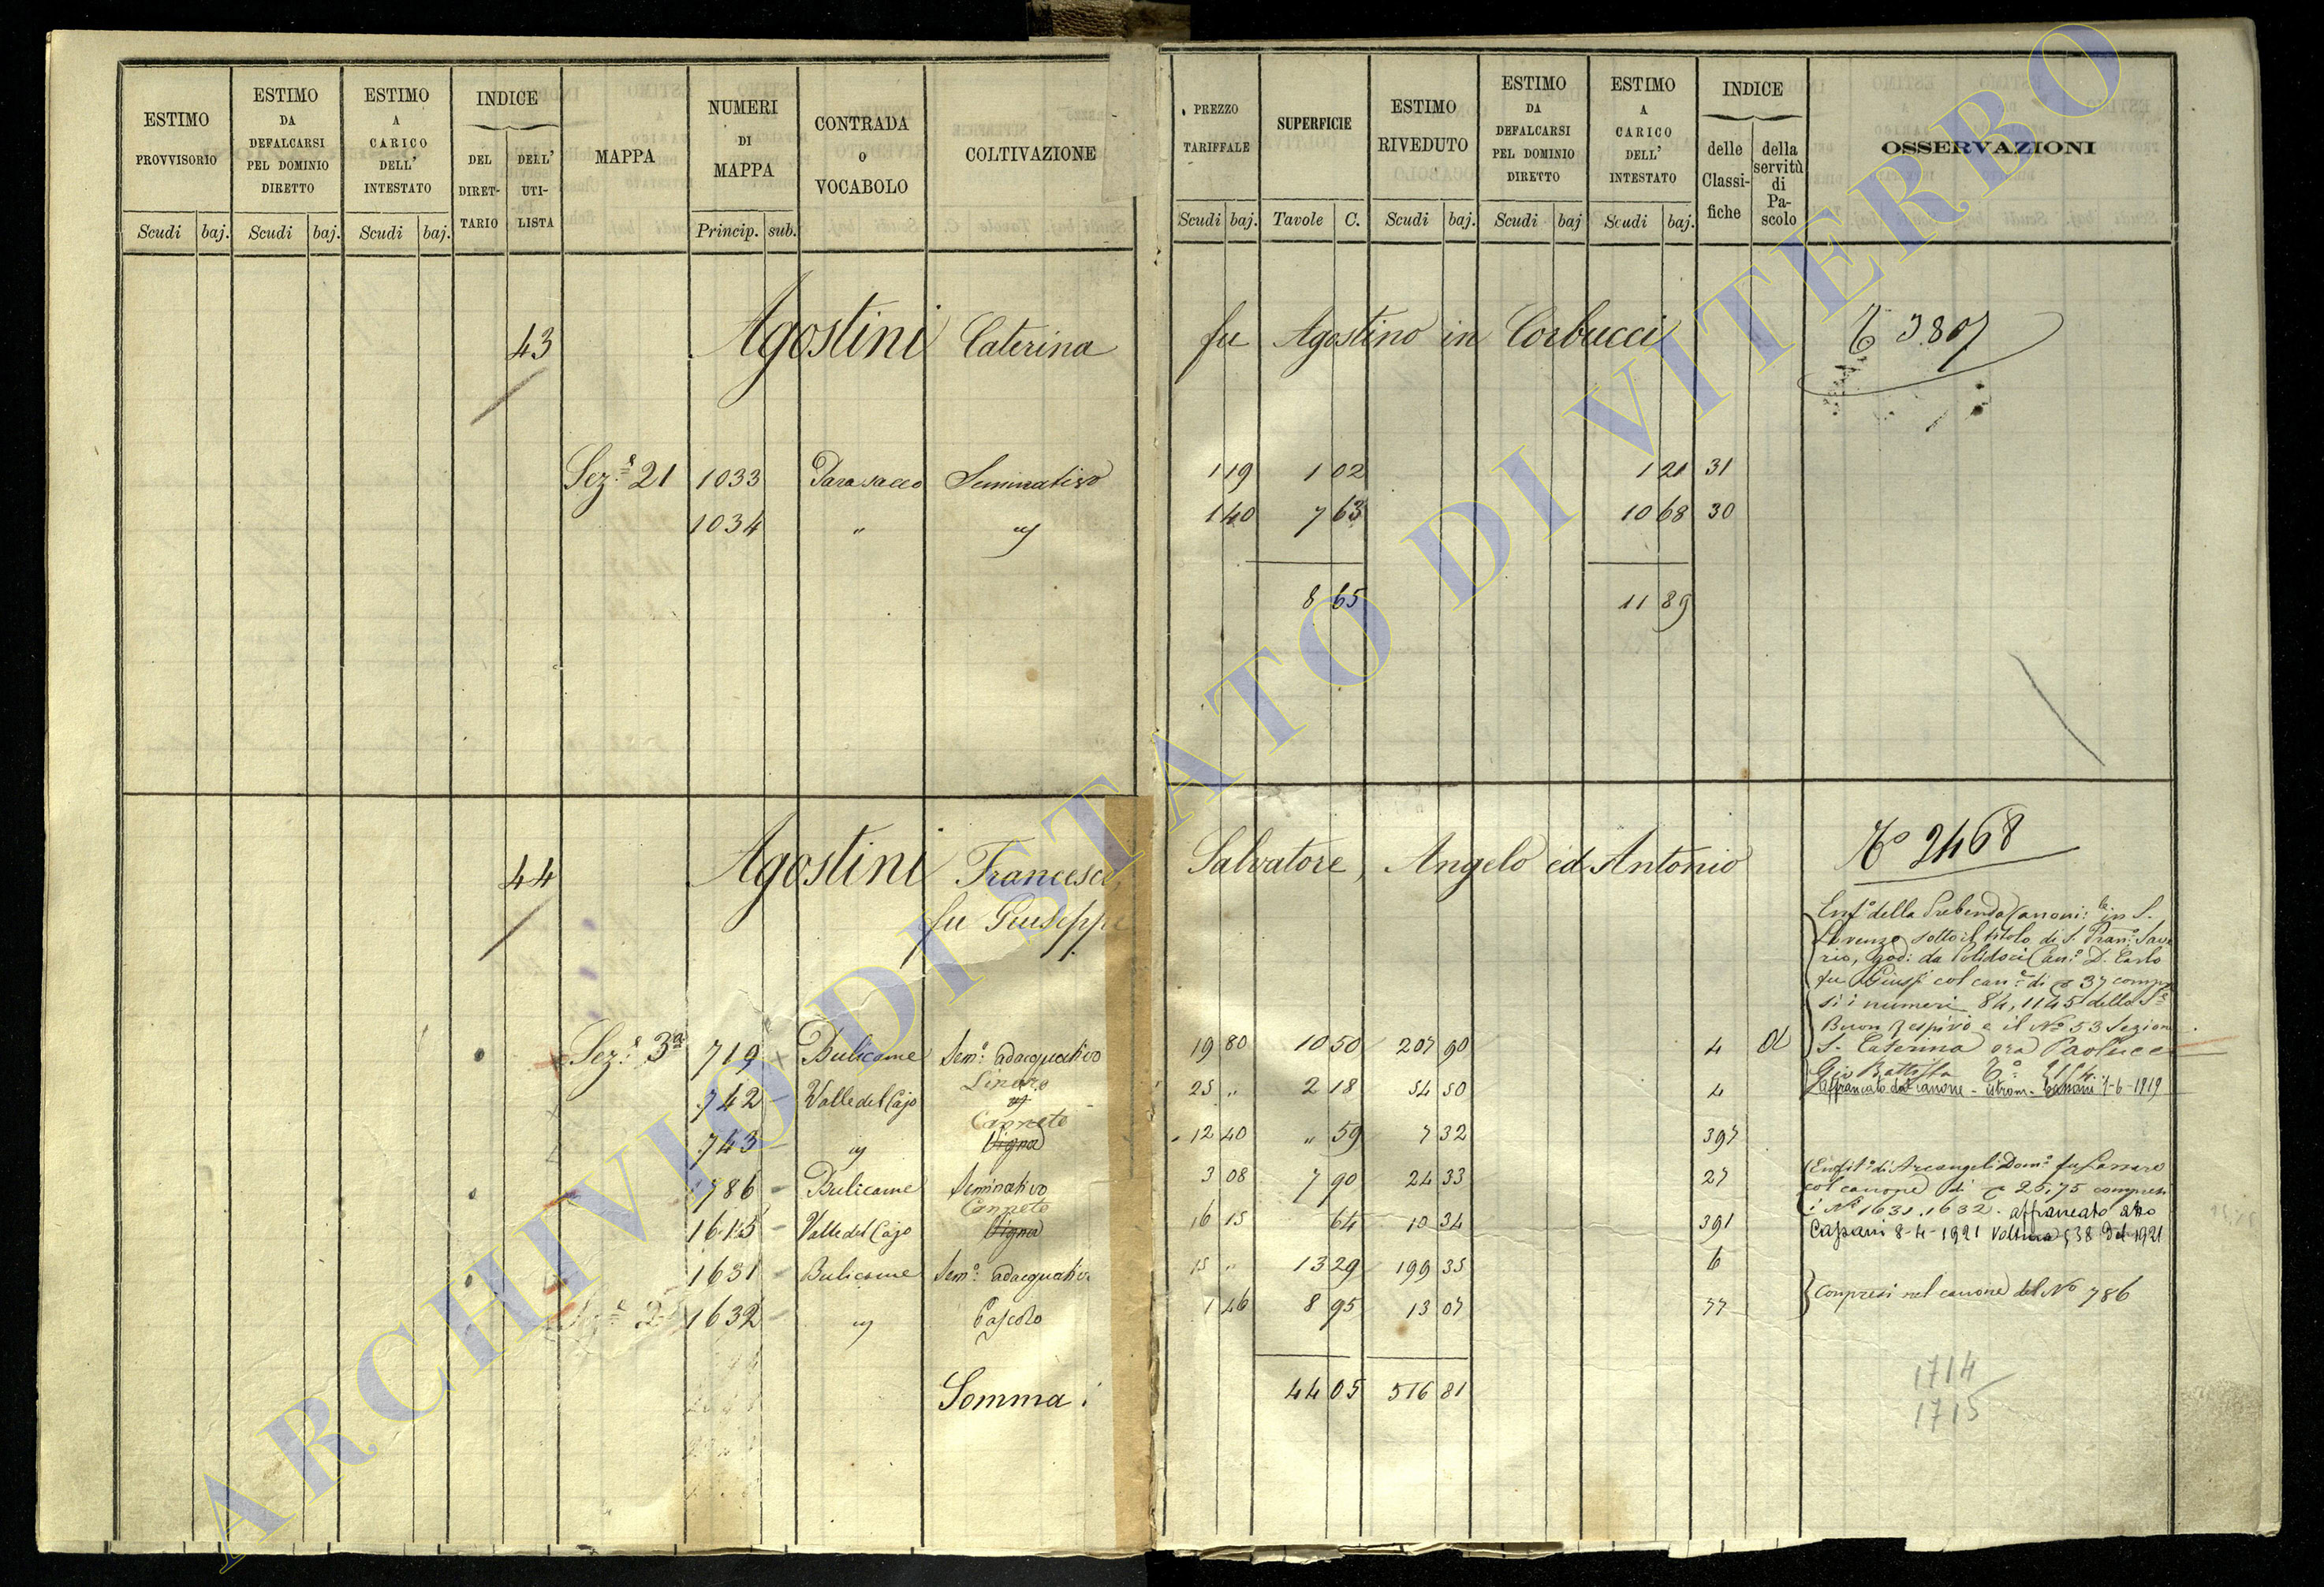 ESTIMO PROVVISORIO Scudi baj.
ESTIMO DA DEFALCARSI PEL DOMINIO DIRETTO Scudi baj.
ESTIMO A CARICO DELL' INTESTATO Scudi baj.
INDICE DEL DIRETTARIO DELL' UTILISTA
MAPPA
NUMERI DI MAPPA Princip. sub.
CONTRADA O VOCABOLO
COLTIVAZIONE
PREZZO TARIFFALE Scudi baj.
SUPERFICIE Tavole C.
ESTIMO RIVEDUTO Scudi baj.
ESTIMO DA DEFALCARSI PEL DOMINIO DIRETTO Scudi baj
ESTIMO A CARICO DELL' INTESTATO Scudi baj.
INDICE delle Classifiche della servitù di Pascolo
OSSERVAZIONI
43 Agostini Caterina fu Agostino in Corbucci 3807
Sez.e 21 1033 Parasacco Seminativo 1 19 1 02 1 21 31
1034 " " 1 40 7 63 10 68 30
8 65 11 89
44 Agostini Francesco, Salvatore, Angelo ed Antonio
fu Giuseppe
No 2468
Enf.o della Prebenda Canoni.le in S.
Lorenzo sotto il titolo di S. Fran.o Save
rio, god: da Polidori Can.o D. Carlo
fu Gius. col can.e di 37 compr
si i numeri 84, 1145 della S.e
Buon Respiro e il No 53 Sezione
S. Caterina ora Paolucci
Gio Battista
Affrancato dal canone - Istrom. 1-6-1919
Sez.e 3a 719 Bulicame Sem.o adacquativo 19 80 10 50 207 90 4 a
Linaro
742 Valle del Cajo " 25 " 2 18 54 50 4
Canneto
743 " Vigna 12 40 " 59 7 32 397
786 Bulicame Seminativo 3 08 7 90 24 33 27
Canneto
1615 Valle del Cajo Vigna 16 15 64 10 34 391
1631 Bulicame Sem.o adacquativo 15 " 13 29 199 35 6
1632 " Pascolo 1 46 8 95 13 07 77
Enfit.o di Arcangeli Dom.o fu
col canone di 25,75 compresi
i Ni 1631.1632. affrancato atto
8-4-1921 Voltura 538 Del 1921
Compresi nel canone del No 786
Somma: 44 05 516 81
1714
1715
ARCHIVIO DI STATO DI VITERBO